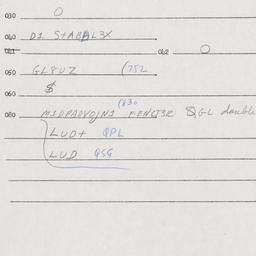 030 O
040 D1 STABBL3X
041 042 O
050 GLPUZ (252
060 $
(830
080 M1DPADVOJN1 FENCT3R & GL double
LUD+ QPL
LUD QSG